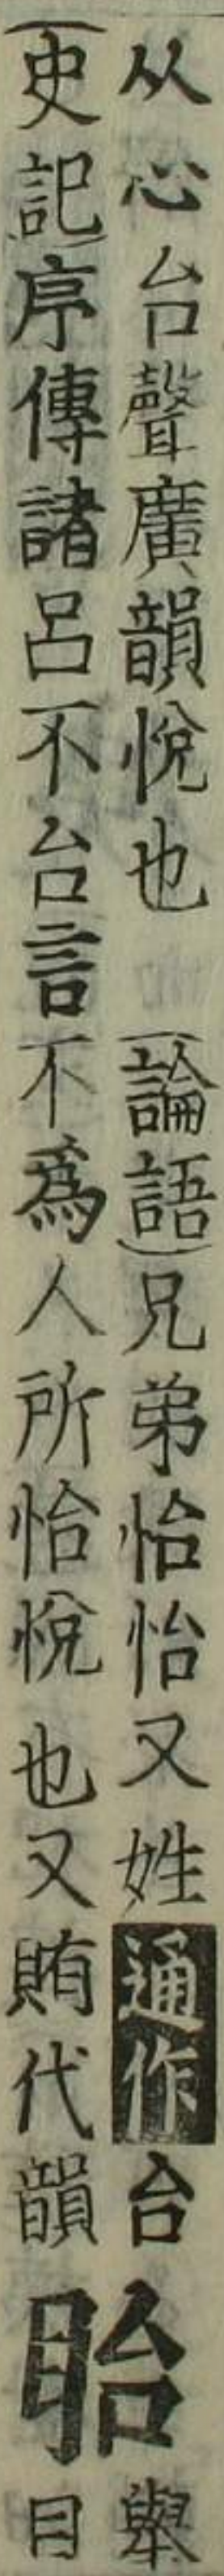 从心台聲廣韻悅也 論語兄弟怡怡又姓通作台
史記序傳諸呂不台言不為人所怡悅也又賄代韻
眙
舉
目